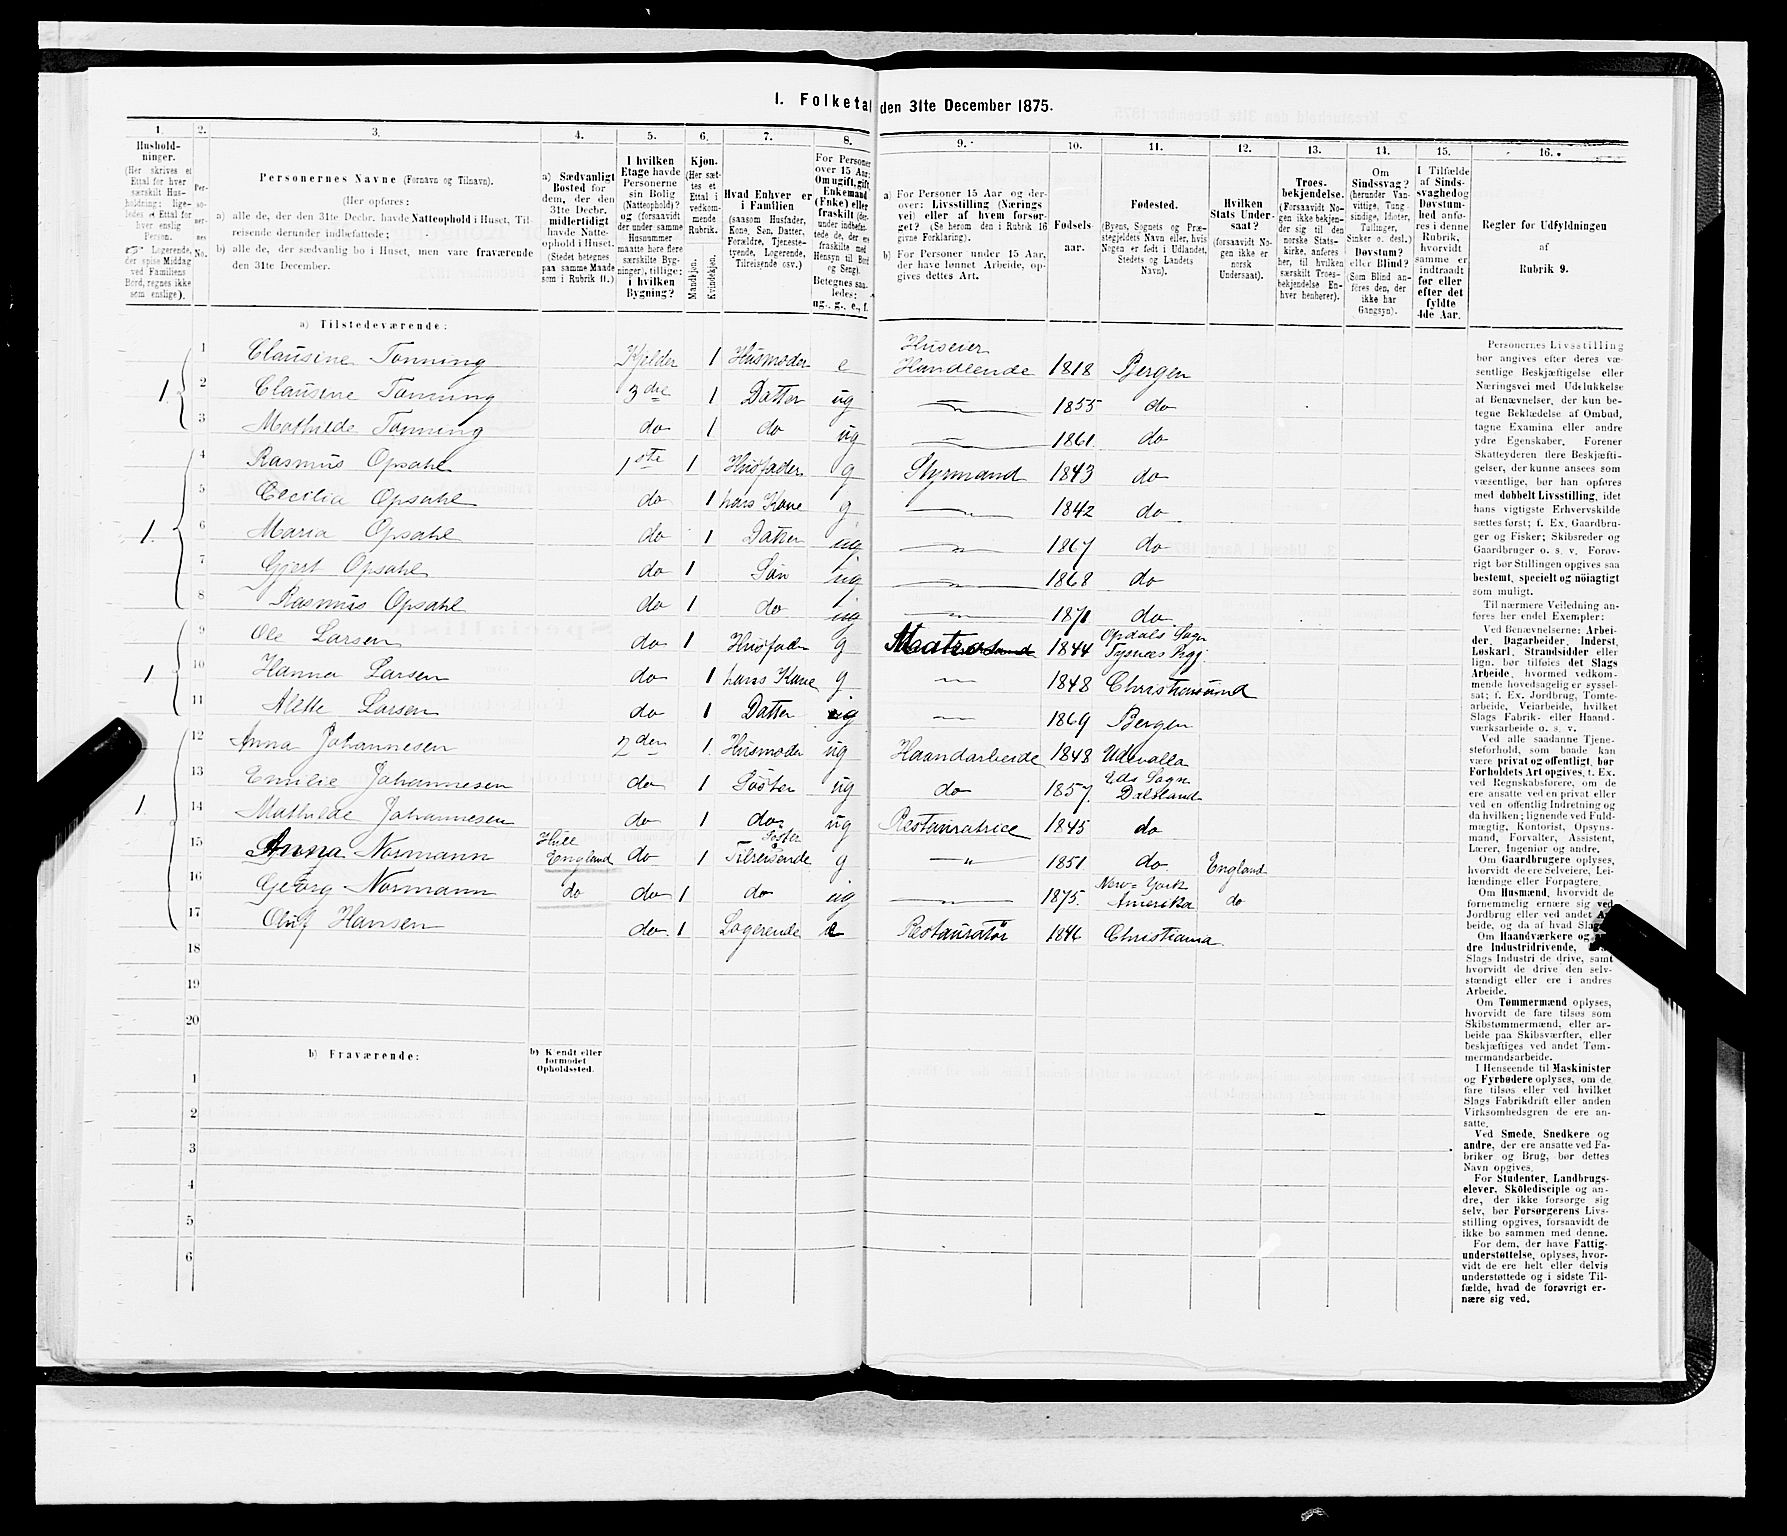 I. Folketal den 31te December 1875.
1. 2. 3. 4. 5. 6. 7. 8. 9. 10. 11. 12. 13. 14. 15. 16.
Husholdninger. (Her skrives et Ettal for hver særskilt Husholdning; ligeledes et Ettal for hver enslig Person. Logerende, der spise Middag ved Familiens Bord, regnes ikke som enslige).
Personernes No.
Personernes Navne (Fornavn og Tilnavn).
(Her opføres:
a) alle de, der den 31te Decbr. havde Natteophold i Huset, Tilreisende derunder indbefattede;
b) alle de, der sædvanlig bo i Huset, men vare fraværende den 31te December.
a) Sædvanligt Bosted for dem, der den 31te Decbr. midlertidigt havde Natteophold i Huset. (Stedet betegnes paa samme Maade som i Rubrik 11.)
I hvilken Etage havde Personerne sin Bolig (Natteophold)? og (forsaavidt der under samme Husnummer maatte høre flere særskilte Bygninger), tillige: i hvilken Bygning?
Kjøn. (Her sættes et Ettal i vedkommende Rubrik.
Mandkjøn. Kvindekjøn.
Hvad Enhver er i Familien (saasom Husfader, Kone, Søn, Datter, Forældre, Tjenestetyende, Logerende, Tilreisende osv.)
For Personer over 15 Aar: Om ugift, gift, Enkemand (Enke) eller fraskilt (derunder indbefattede de, der ere fraskilte med Hensyn til Bord og Seng). Betegnes saaledes: ug., g., e., f.
a) For Personer 15 Aar og derover: Livsstilling (Næringsvei) eller af hvem forsørget? (Se herom den i Rubrik 16 givne Forklaring).
b) For Personer under 15 Aar, der have lønnet Arbeide, opgives dettes Art.
Fødselsaar.
Fødested. (Byens, Sognets og Præstegjeldets Navn eller, hvis Nogen er født i Udlandet, Stedets og Landets Navn).
Hvilken Stats Undersaat? (forsaavidt Nogen ikke er norsk Undersaat).
Troesbekjendelse. (Forsaavidt Nogen ikke bekjender sig til den norske Statskirke, anføres her, til hvilken særskilt Troesbekjendelse Enhver henhører).
Om Sindssvag? (herunder Vanvittige, Tungsindige, Idioter, Tullinger, Sinker o. desl.) Døvstum? eller Blind? (Som Blind anføres den, der ikke har Gangsyn).
I Tilfælde af Sindssvaghed og Døvstumhed anføres i denne Rubrik, hvorvidt samme er indtraadt før eller efter det fyldte 4de Aar.
Regler for Udfyldningen af Rubrik 9.
a) Tilstedeværende:
1 Clausine Tonning Kjelder 1 Husmoder e Huseier Handlende 1818 Bergen
1. 2 Clausine Tonning 3die 1 Datter ug 1855 do
3 Mathilde Tonning do 1 do ug 1861 do
4 Rasmus Opsahl 1ste 1 Husfader g Styrmand 1843 do
5 Cecilia Opsahl do 1 hans Kone g 1842 do
1. 6 Maria Opsahl do 1 Datter ug 1867 do
7 Gjert Opsahl do 1 Søn ug 1868 do
8 Rasmus Opsahl do 1 do ug 1871 do
9 Ole Larsen do 1 Husfader g Matros 1844 Opdals Sogn Tysnæs Prgj.
1 10 Hanna Larsen do 1 hans Kone g 1848 Christiansund
11 Alette Larsen do 1 Datter ug 1869 Bergen
12 Anna Johannesen 2den 1. Husmoder ug Haandarbeide 1848 Udevalla
13 Emilie Johannesen do 1 Søster ug do 1857 Eds Sogn Dalsland
1. 14 Mathilde Johannesen do 1 do ug Restauratrice 1845 do
15 Anna Normann Hull England do 1 Søster Tilreisende g " 1851 do England
16 Georg Normann do do 1 do ug 1875. New-York Amerika do
17 Oluf Hansen do 1 Logerende e Restauratör 1846 Christiania
18
19
20
b) Fraværende: b) Kjendt eller formodet Opholdssted.
1
2
3
4
5
6
Personernes Livsstilling
bør angives efter deres væ-
sentlige Beskjæftigelse eller
Næringsvei med Udelukkelse
af Benævnelser, der kun be-
tegne Beklædelse af Ombud,
tagne Examina eller andre
ydre Egenskaber. Forener
Skatteyderen flere Beskjæfti-
gelser, der kunne ansees som
væsentlige, bør han opføres
med dobbelt Livsstilling, idet
hans vigtigste Erhvervskilde
sættes først; f. Ex. Gaardbru-
ger og Fisker; Skibsreder og
Gaardbruger o. s. v. Forøv-
rigt bør Stillingen opgives saa
bestemt, specielt og nöiagtigt
som muligt.
Til nærmere Veiledning an-
føres her endel Exempler:
Ved Benævnelserne: Arbei-
der, Dagarbeider, Inderst,
Løskarl, Strandsidder eller
lign. bør tilføies det Slags
Arbeide, hvormed vedkom-
mende hovedsagelig er syssel-
sat; f. Ex. Jordbrug, Tomte-
arbeide, Veiarbeide, hvilket
Slags Fabrik- eller Haand-
værksarbeide o. s. v.
Ved alle saadanne Tjene-
steforhold, som baade kan
være privat og offentligt, bør
Forholdets Art opgives, f. Ex.
ved Regnskabsførere, om de
ere ansatte ved en privat eller
ved en offentlig Indretning og
da hvilken; lignende ved Fuld-
mægtig, Kontorist, Opsyns-
mand, Forvalter, Assistent,
Lærer, Ingeniør og andre.
Om Gaardbrugere oplyses,
hvorvidt de ere Selveiere, Lei-
lændinge eller Forpagtere.
Om Husmænd, hvorvidt de
fornemmelig ernære sig ved
Jordbrug eller ved andet Ar-
beide, og da af hvad Slags.
Om Haandværkere og an-
dre Industridrivende, hvad
Slags Industri de drive, samt
hvorvidt de drive den selv-
stændigt eller ere i andres
Arbeide.
Om Tømmermænd oplyses,
hvorvidt de fare tilsøs som
Skibstømmermænd, eller ar-
beide paa Skibsværfter, eller
beskjæftiges ved andet Tøm-
mermandsarbeide.
I Henseende til Maskinister
og Fyrbødere oplyses, om de
fare tilsøs eller ved hvilket
Slags Fabrikdrift eller anden
Virksomhedsgren de ere an-
satte.
Ved Smede, Snedkere og
andre, der ere ansatte ved Fa-
briker og Brug, bør dettes
Navn opgives.
For Studenter, Landbrugs-
elever, Skoledisciple og an-
dre, der ikke forsørge sig
selv, bør Forsørgerens Livs-
stilling opgives, forsaavidt de
ikke bo sammen med denne.
For dem, der have Fattig-
understøttelse, oplyses, hvor-
vidt de ere helt eller delvis
understøttede og i sidste Til-
fælde, hvad de forøvrigt er-
nære sig ved.